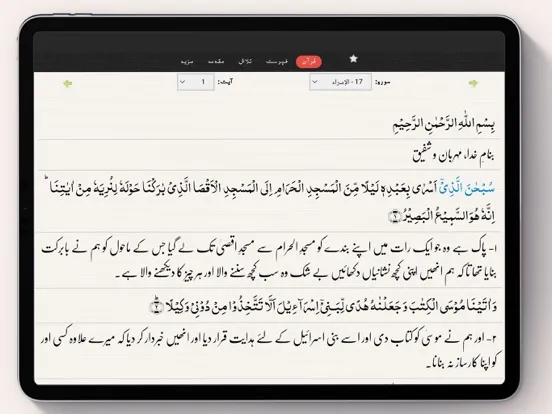 قرآن فہرست تلاش مقدمہ مزید
سورہ: 17 - الإسراء آیت: 1
بِسْمِ اللّٰهِ الرَّحْمٰنِ الرَّحِيْمِ
بنام خدا، مہربان و شفیق
سُبْحٰنَ الَّذِيْۤ اَسْرٰى بِعَبْدِهٖ لَيْلًا مِّنَ الْمَسْجِدِ الْحَرَامِ اِلَى الْمَسْجِدِ الْاَقْصَا الَّذِيْ بٰرَكْنَا حَوْلَهٗ لِنُرِيَهٗ مِنْ اٰيٰتِنَا ؕ
اِنَّهٗ هُوَ السَّمِيْعُ الْبَصِيْرُ ﴿۱﴾
۱- پاک ہے وہ جو ایک رات میں اپنے بندے کو مسجد الحرام سے مسجد اقصی تک لے گیا جس کے ماحول کو ہم نے بابرکت
بنایا تھا تاکہ ہم انھیں اپنی کچھ نشانیاں دکھائیں بے شک وہ سب کچھ سننے والا اور ہر چیز کا دیکھنے والا ہے۔
وَ اٰتَيْنَا مُوْسَى الْكِتٰبَ وَ جَعَلْنٰهُ هُدًى لِّبَنِيْۤ اِسْرَآءِيْلَ اَلَّا تَتَّخِذُوْا مِنْ دُوْنِيْ وَكِيْلًا ﴿۲﴾ؕ
۲- اور ہم نے موسیٰ کو کتاب دی اور اسے بنی اسرائیل کے لئے ہدایت قرار دیا اور انھیں خبردار کر دیا کہ میرے علاوہ کسی اور
کو اپنا کارساز نہ بنانا۔